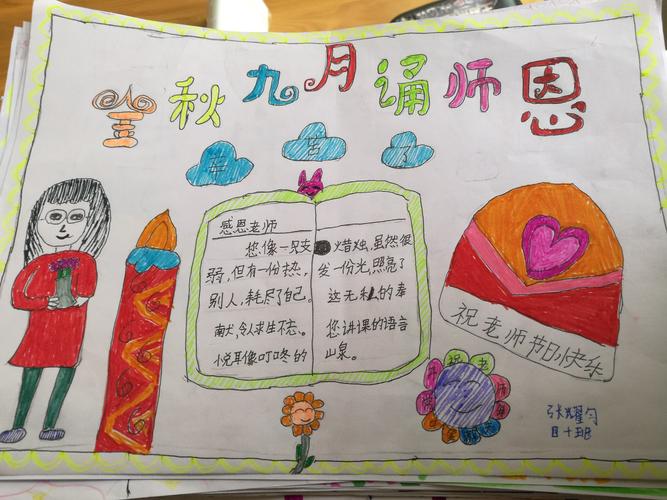 金秋九月诵师恩
辛苦了
感恩老师
您像一只支 惜烛,虽然很
弱,但有一份热, 发一份光,照亮了
别人,耗尽了自己。 这无私的奉
献,令人求生不忘。 您讲课的语言
悦耳像叮咚的 山泉。
祝老师节日快乐
祝老师
张耀匀
四十班